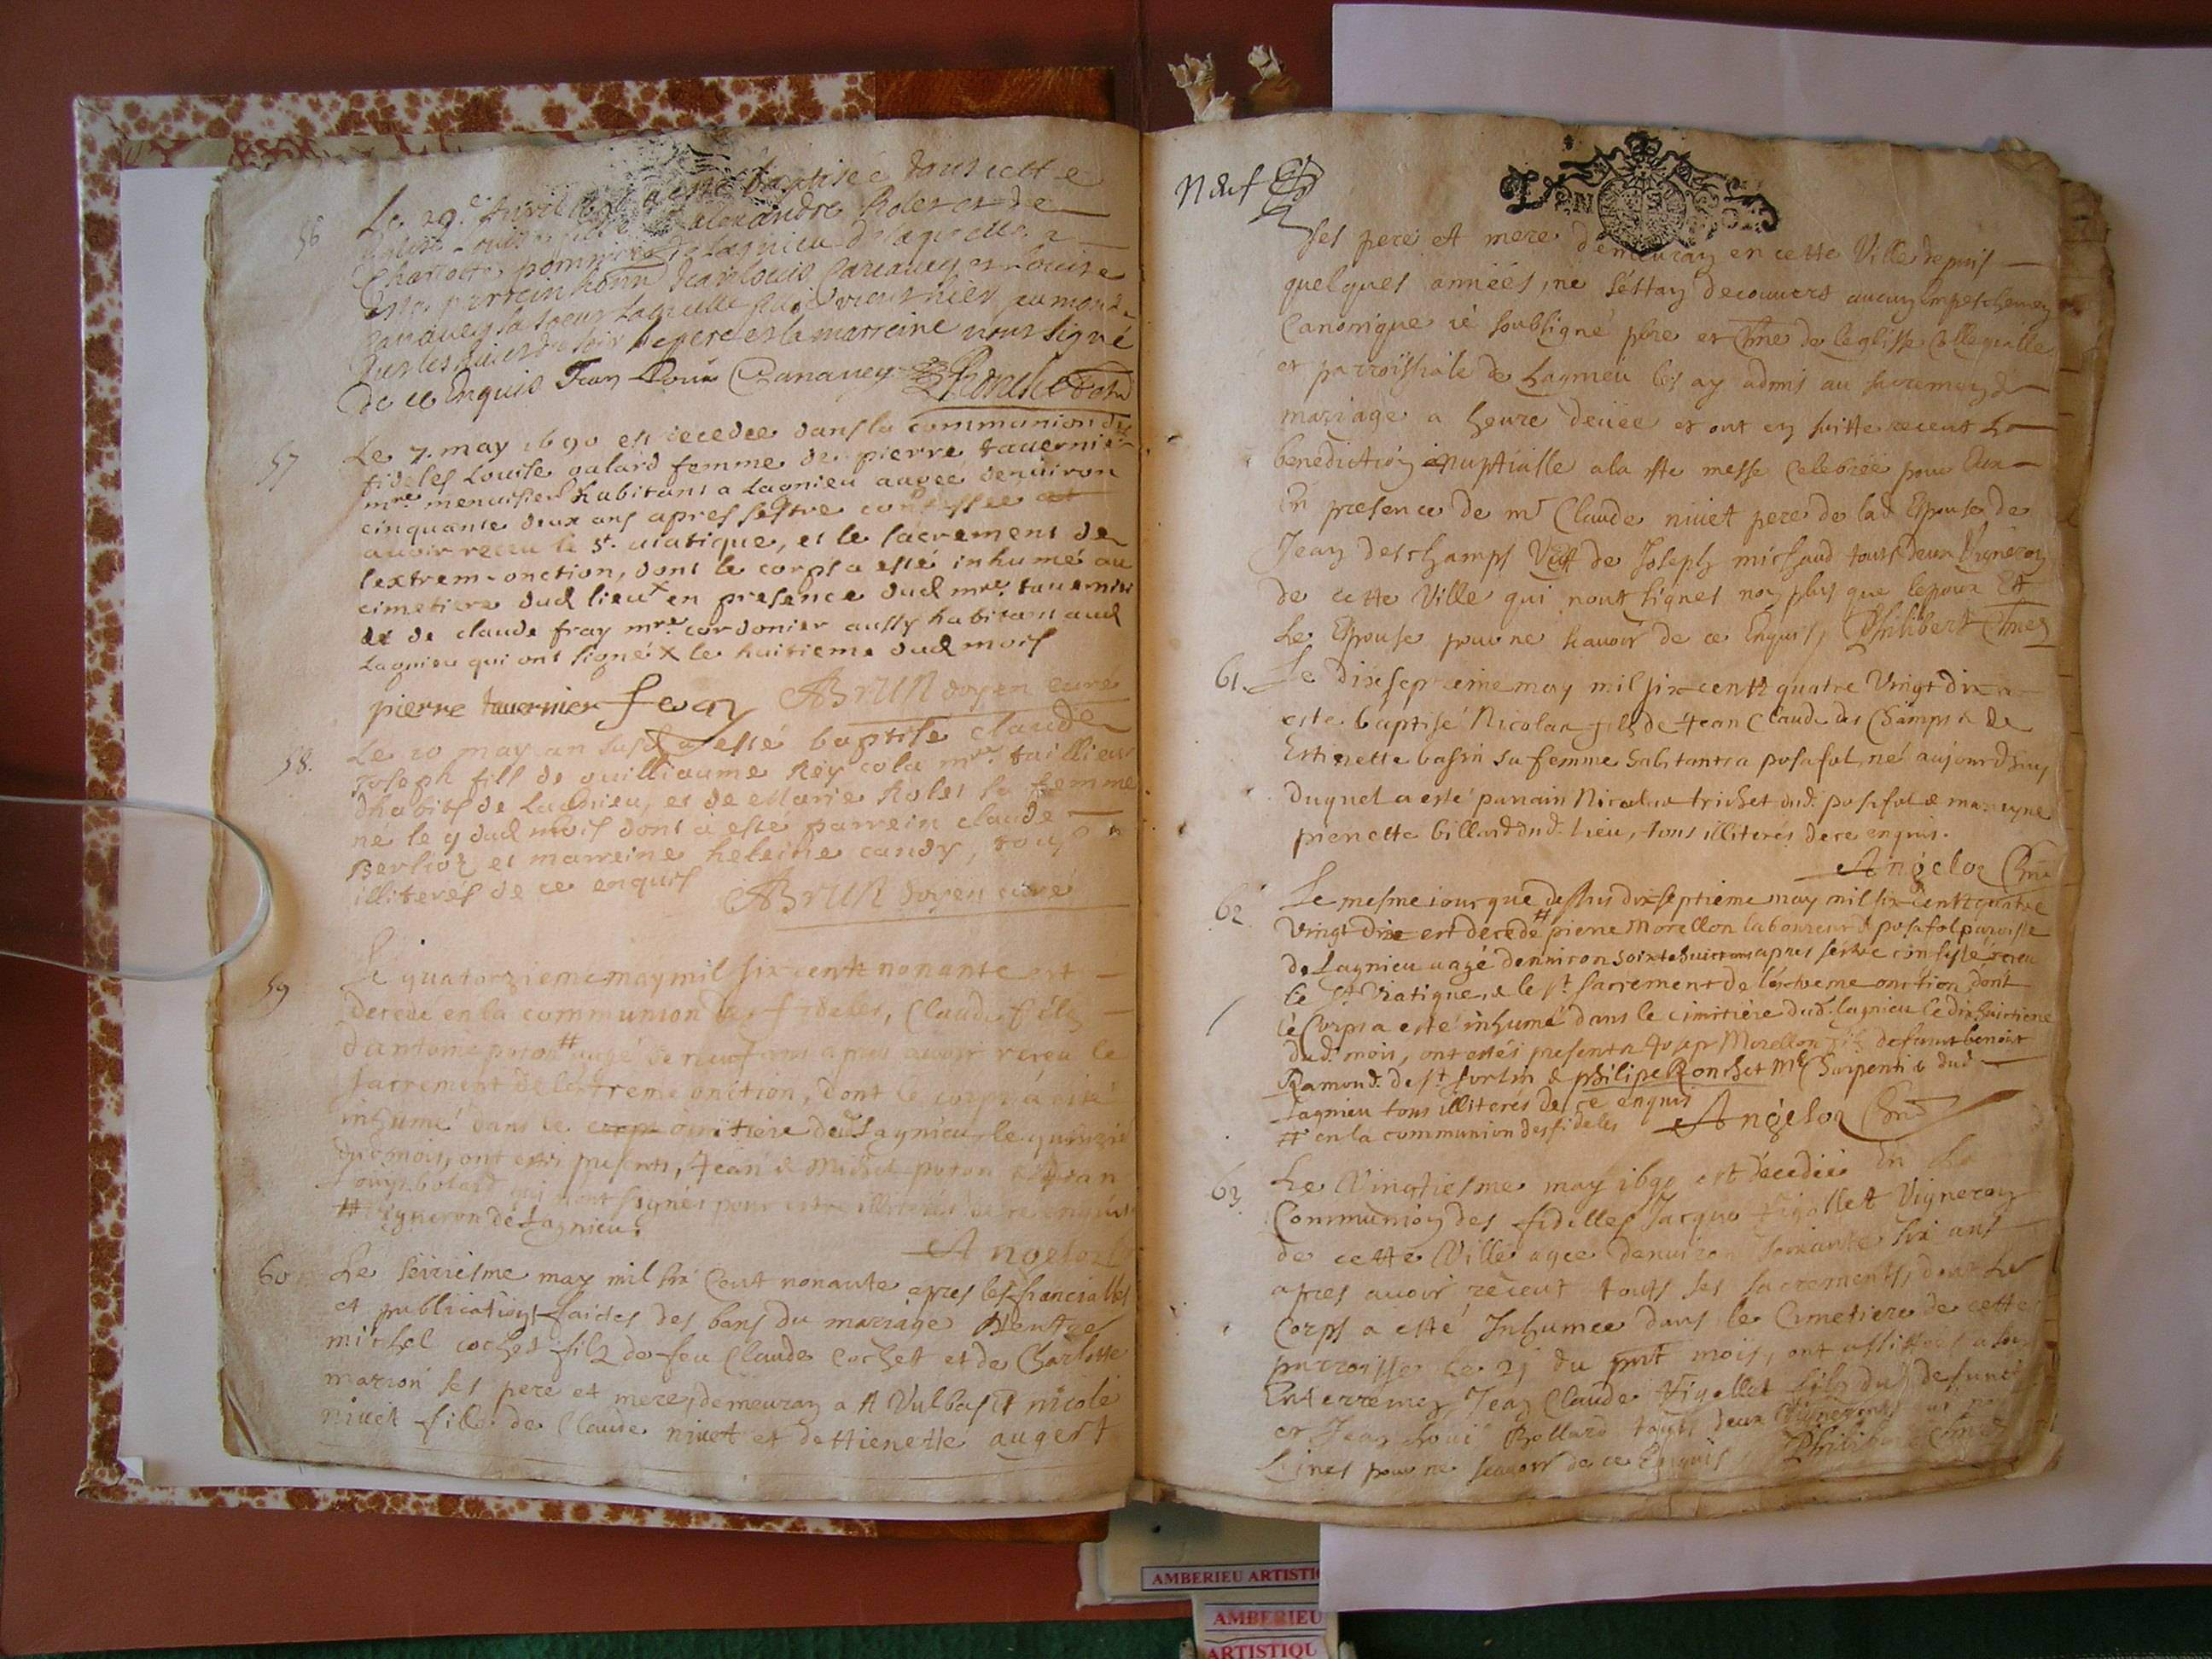 56 Le 29.e Avril 1690 a esté baptisée dans cette
Louise fille d'alexandre Rolet et de
Charlotte pommier de Lagnieu de laquelle a
esté parrein honn. Jean louis Caranvey et Louise
Caranvey sa soeur laquelle
Le pere et la marreine n'ont signé
de ce Enquis Jean Loui Caranvey
57 Le 7. may 1690 est decedée dans la communion des
fideles Louise galard femme de pierre tavernier
mre. menuisier habitant a Lagnieu aagée denuiron
cinquante deux ans apres sestre confessée et
auoir receu le St. uiatique, et le sacrement de
lextrem-onction, dont le corps a esté inhumé au
cimetiere dud lieu x en presence dud mre. tauernier
et de claude fray mre. cordonier aussy habitant aud
Lagnieu qui ont signé x le huitieme dud mois
pierre tauernier fray ABrun doyen curé
58. Le 10 may an susd a esté baptise claude
Joseph fils de guilliaume Rey cola mre. taillieur
dhabits de Lagnieu, et de Marie Rolet sa femme
né le 9 dud mois dont a esté parrein claude
Berlioz et marreine heleine candy, tous
illiterés de ce enquis ABrun doyen curé
59 Le quatorzieme may mil six cents nonante est
decedé en la communion des fideles, Claude fils
d'antoine poton # aagé de neuf ans apres avoir receu le
sacrement de l'extreme onction, dont le corps a esté
inhumé dans le corps cimitiere dud Lagnieu, le quinzie
dud mois, ont estés presents, Jean & Michel poton & Jean
Louys bolard qui n'ont signes pour estre illiterés de ce enquis
# vigneron de Lagnieu.
Angeloz
60 Le seiziesme may mil six Cent nonante apres les fiancialles
et publications faictes des bans du mariage Dentre
michel cochet filz de feu Claude Cochett et de Charlotte
marion ses pere et mere, demeuran a St Vulbas et nicole
nivet fille de Claude nivet et dettienette augert
Neuf
ses pere et mere demeuran en cette Ville depuis
quelques années, ne s'estan decouvert aucun Empeschement
Canonique ie soubsigné pbre et Chne de leglisse Collegialle
et parroissiale de Lagnieu les ay admis au sacrement de
mariage a heure deuee et ont en suitte receut La
benediction nuptialle a la ste messe Celebrée pour Eux
En presence de mr Claude nivet pere de lad Espouse de
Jean deschamps Vett de Joseph michaud touts deux Vigneron
de cette Ville qui nont signes non plus que lepoux Et
Le Espouse pour ne scavoir de ce Enquis, Philibert Chne
61. Le dixseptieme may mil six cents quatre Vingt dix a
esté baptisé Nicolas fils de Jean Claude des Champs & de
Estienette bassin sa femme habitants a posafol, né aujourdhuy
duquel a esté parrain Nicolas trichet dud. posafol & marreyne
pierrette billard dud. Lieu, tous illiterés de ce enquis.
Angeloz Chne
62 Le mesme iour que dessus dixseptieme may mil six Cents quatre
Vingt Dix est decedé # pierre Morellon laboureur de posafol paroisse
de Lagnieu aagé denviron soixte huict ans apres sestre confessé receu
le St Viatique, & le st sacrement de l'extreme onction dont
le Corps a esté inhumé dans le cimitiere dud. lagnieu le dixhuictieme
dud. mois, ont estés presents Josep Morellon fils de funct benoist
Ramond. de st sorlin & philipe Ronchet Me Charpentie dud
Lagnieu tous illiterés de ce enquis
# en la communion des fideles Angeloz Chne
63. Le Vingtiesme may 1690 est decedée En La
Communion des fidelles Jacque figollet Vigneron
de cette Ville agee denviron soixante six ans
apres avoir receut touts ses sacrements, dont Le
Corps a esté Inhumee dans le Cimetiere de cette
parroisse Le 21 du pnt mois, ont assistees a son
Enterrement Jean Claude figollet filz du defunct
et Jean Loui Bollard touts deux Vignerons qui n
signes pour ne scavoir de ce Enquis Philibert Chne
AMBERIEU ARTISTI
AMBERIEU
ARTISTIQU